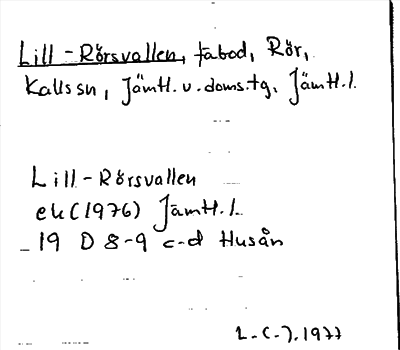 Lill-Rörsvallen, fäbod, Rör,
Kalls sn, Jämtl. v. doms.tg. Jämtl. l.
Lill-Rörsvallen
ek (1976) Jämtl. l.
19 D 8-9 c-d Husån
1977